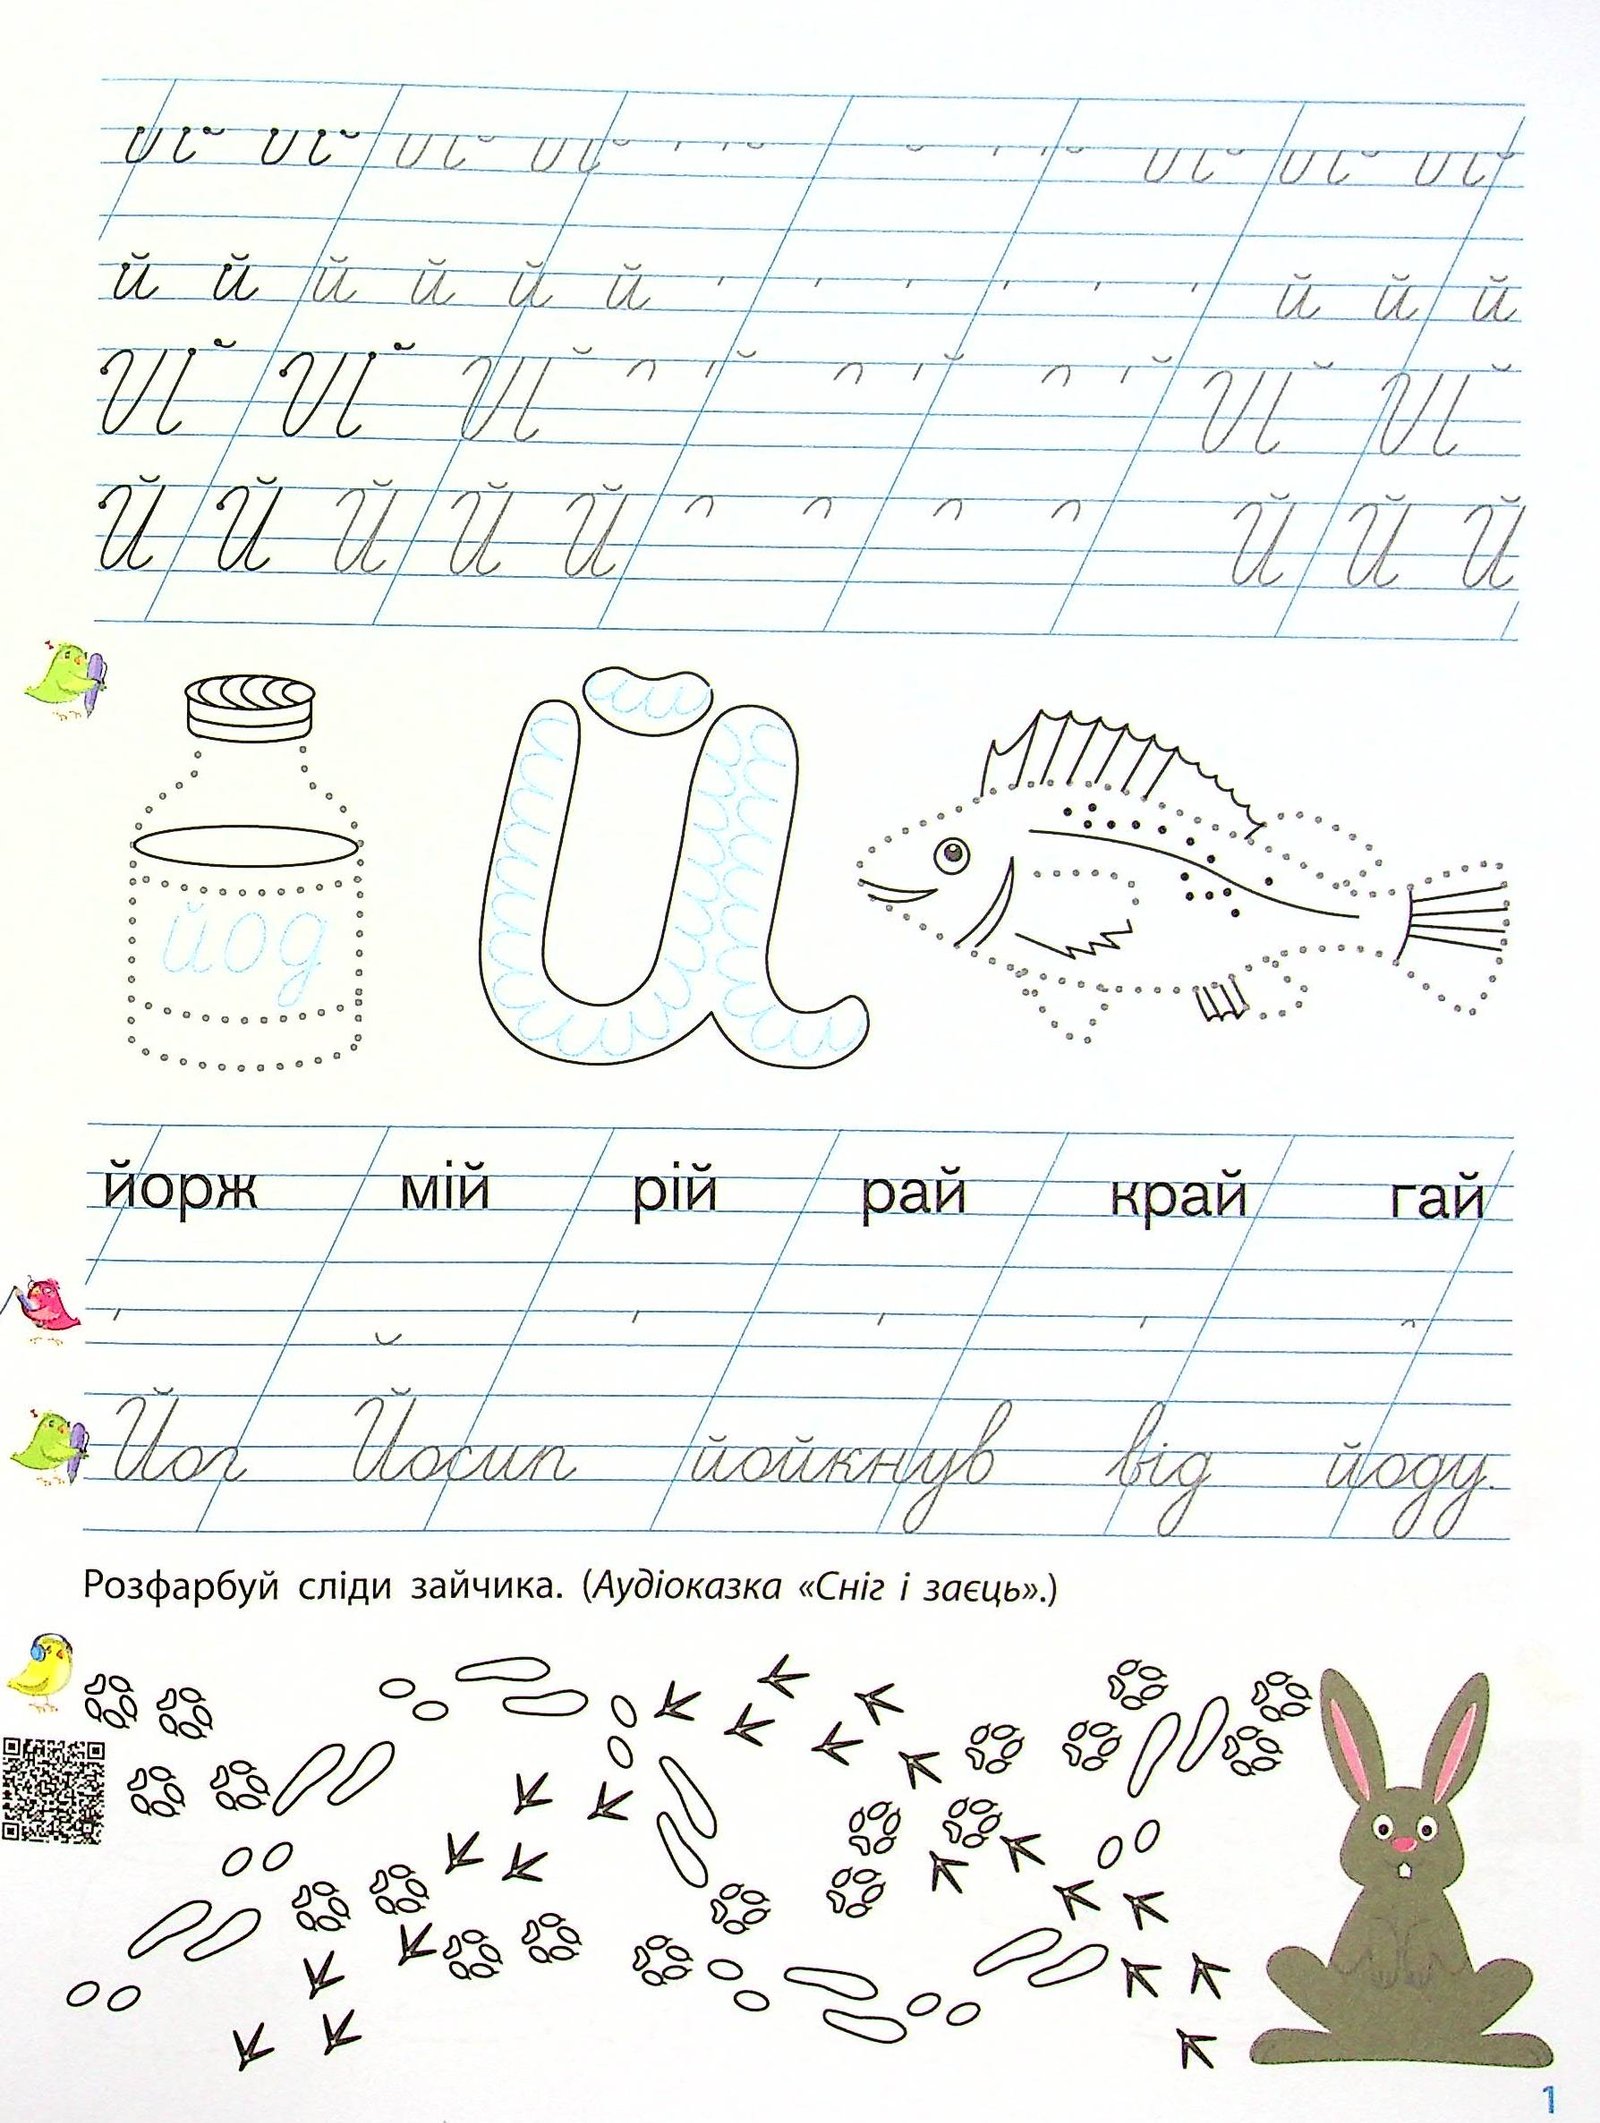 й й й й й й й
й й й й й й й й й
Й Й Й Й Й
Й Й Й Й Й Й Й Й
йод
й
йорж мій рій рай край гай
Йог Йосип йойкнув від йоду.
Розфарбуй сліди зайчика. (Аудіоказка «Сніг і заєць».)
1